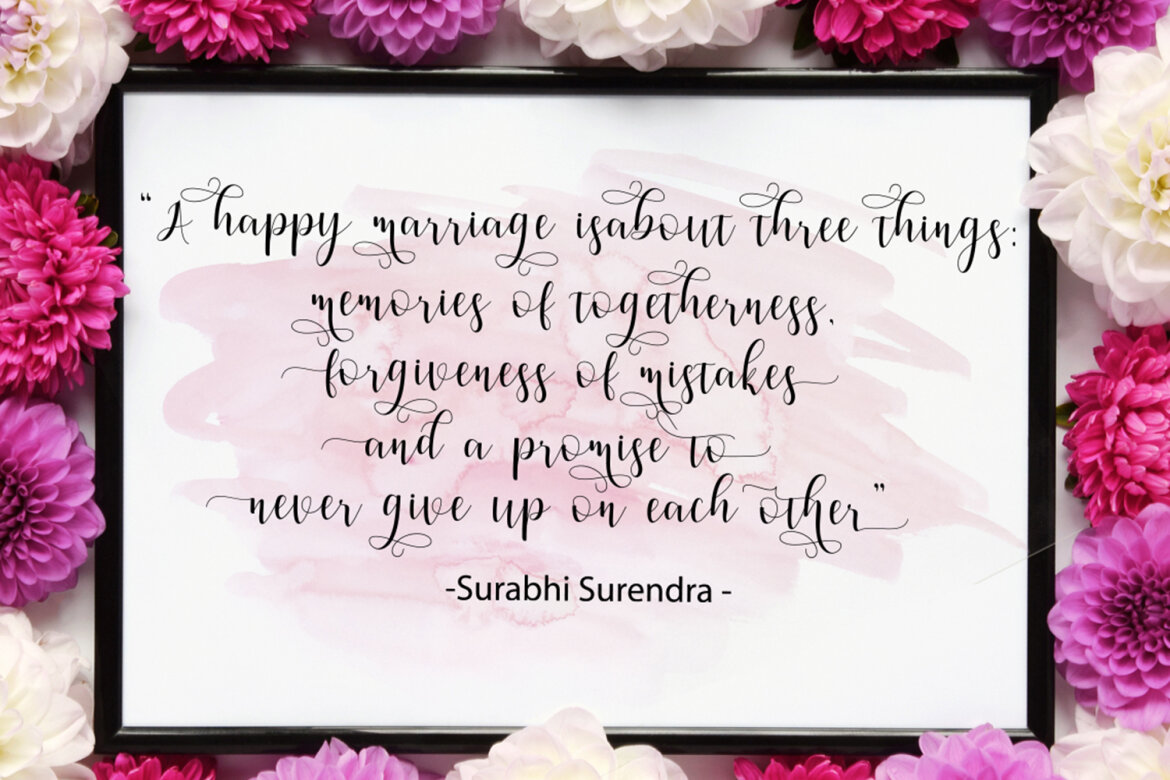 “A happy marriage isabout three things:
memories of togetherness,
forgiveness of mistakes
and a promise to
never give up on each other”
-Surabhi Surendra -